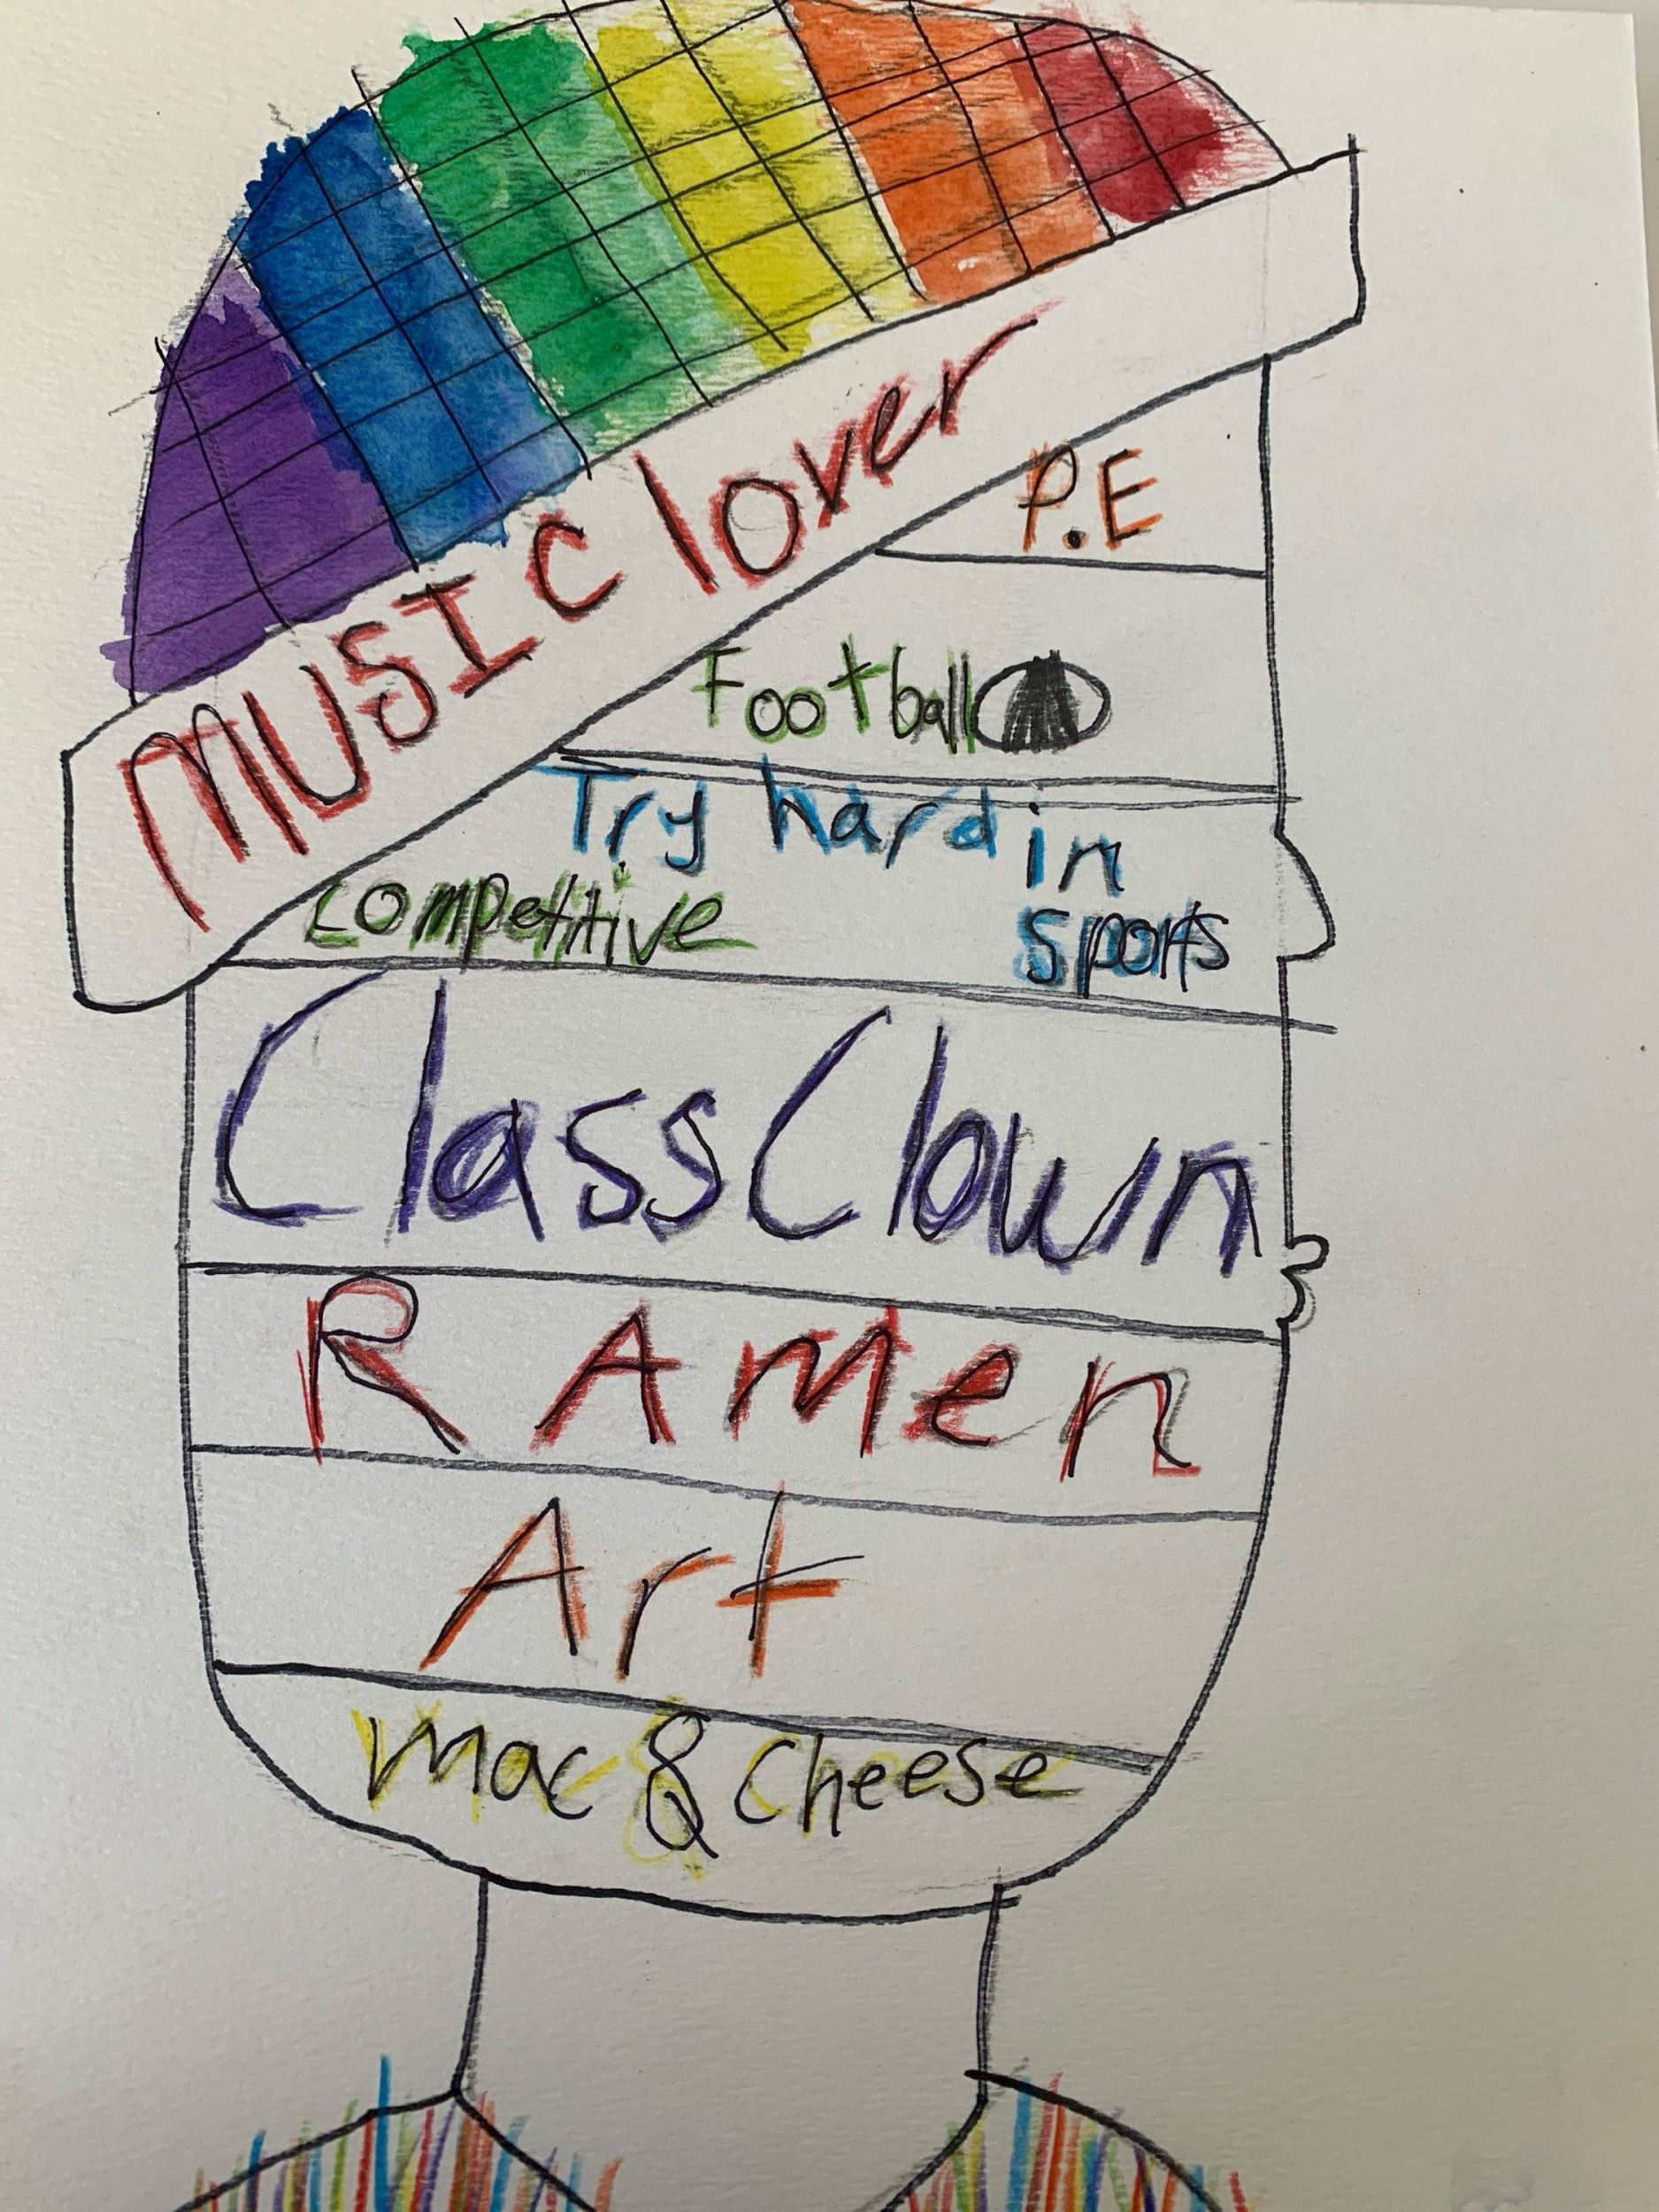 MUSIC lover
P.E
Football
Try hard in
competitive sports
Class Clown
RAmen
Art
Mac & Cheese